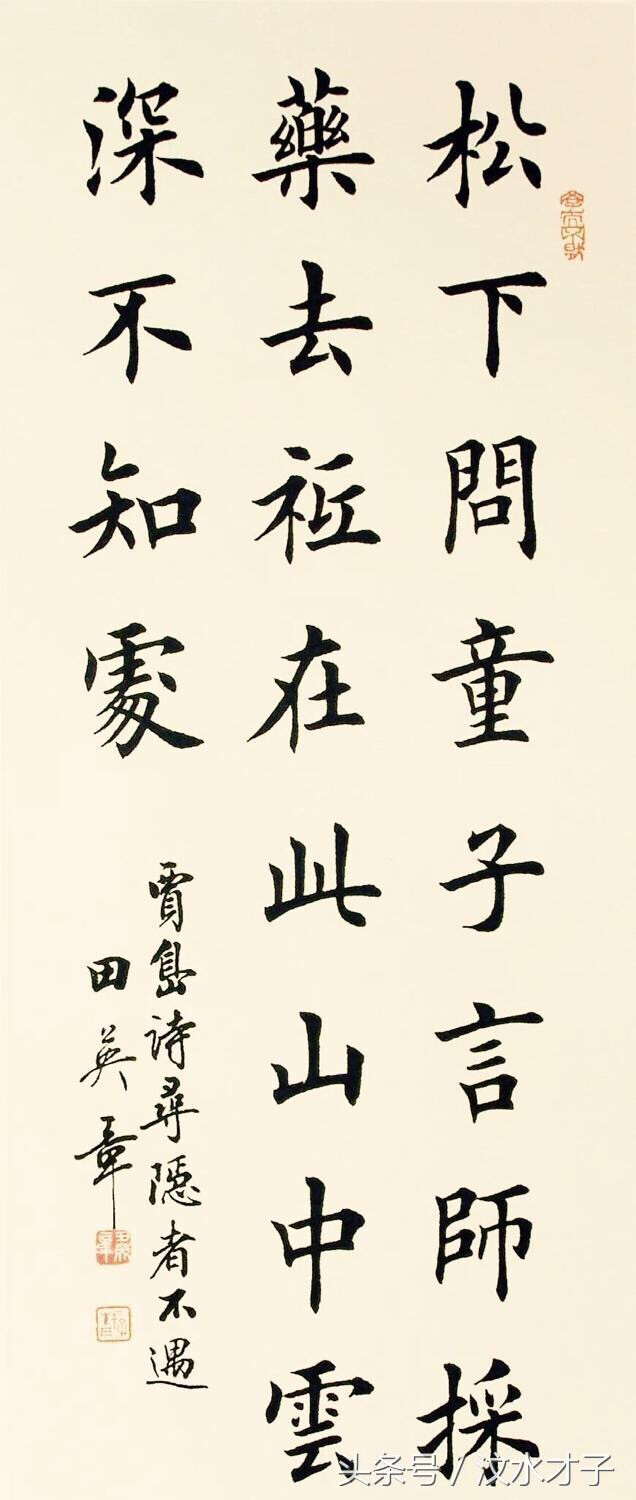 松下問童子言師採
藥去秪在此山中雲
深不知處
賈島詩尋隱者不遇
田英章
头条号 / 汶水才子